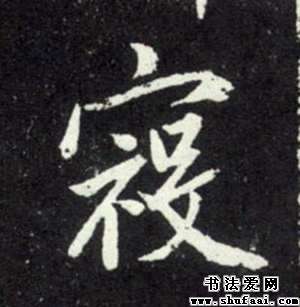 寝
书法爱网
www.shufaai.com